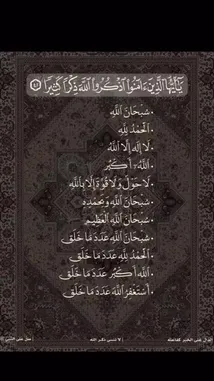 يَٰٓأَيُّهَا ٱلَّذِينَ ءَامَنُوا۟ ٱذْكُرُوا۟ ٱللَّهَ ذِكْرًا كَثِيرًا ٤١
• سُبْحَانَ اللَّهِ
• الْحَمْدُ لِلَّهِ
• لَا إِلَهَ إِلَّا اللَّهُ
• اللَّهُ أَكْبَرُ
• لَا حَوْلَ وَلَا قُوَّةَ إِلَّا بِاللَّهِ
• سُبْحَانَ اللَّهِ وَبِحَمْدِهِ
• سُبْحَانَ اللَّهِ الْعَظِيمِ
• سُبْحَانَ اللَّهِ عَدَدَ مَا خَلَقَ
• الْحَمْدُ لِلَّهِ عَدَدَ مَا خَلَقَ
• اللَّهُ أَكْبَرُ عَدَدَ مَا خَلَقَ
• أَسْتَغْفِرُ اللَّهَ عَدَدَ مَا خَلَقَ
الدال على الخير كفاعله | لا تنسى ذكر الله | صل على النبي